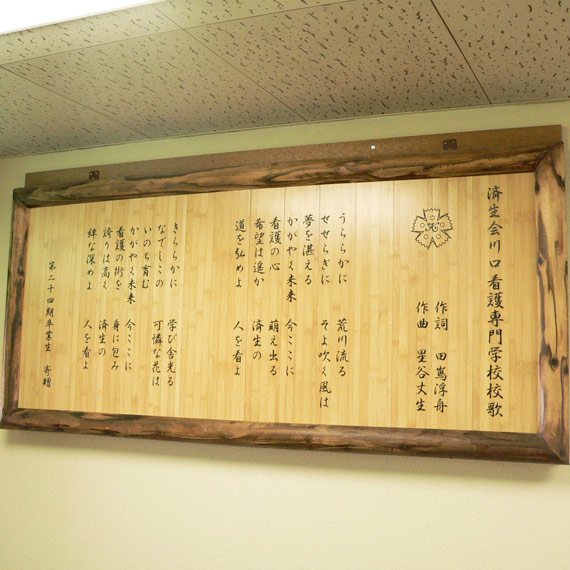 済生会川口看護専門学校校歌
作詞 田嶌浮舟
作曲 星谷丈生
うららかに 荒川流る
せせらぎに そよ吹く風は
夢を湛える
かがやく未来 今ここに
看護の心 萌え出る
希望は遥か 済生の
道を弘めよ 人を看よ
きららかに 学び舎光る
なでしこの 可憐な花は
いのち育む
かがやく未来 今ここに
看護の術を 身に包み
誇りは高く 済生の
絆な深めよ 人を看よ
第二十四期卒業生 寄贈